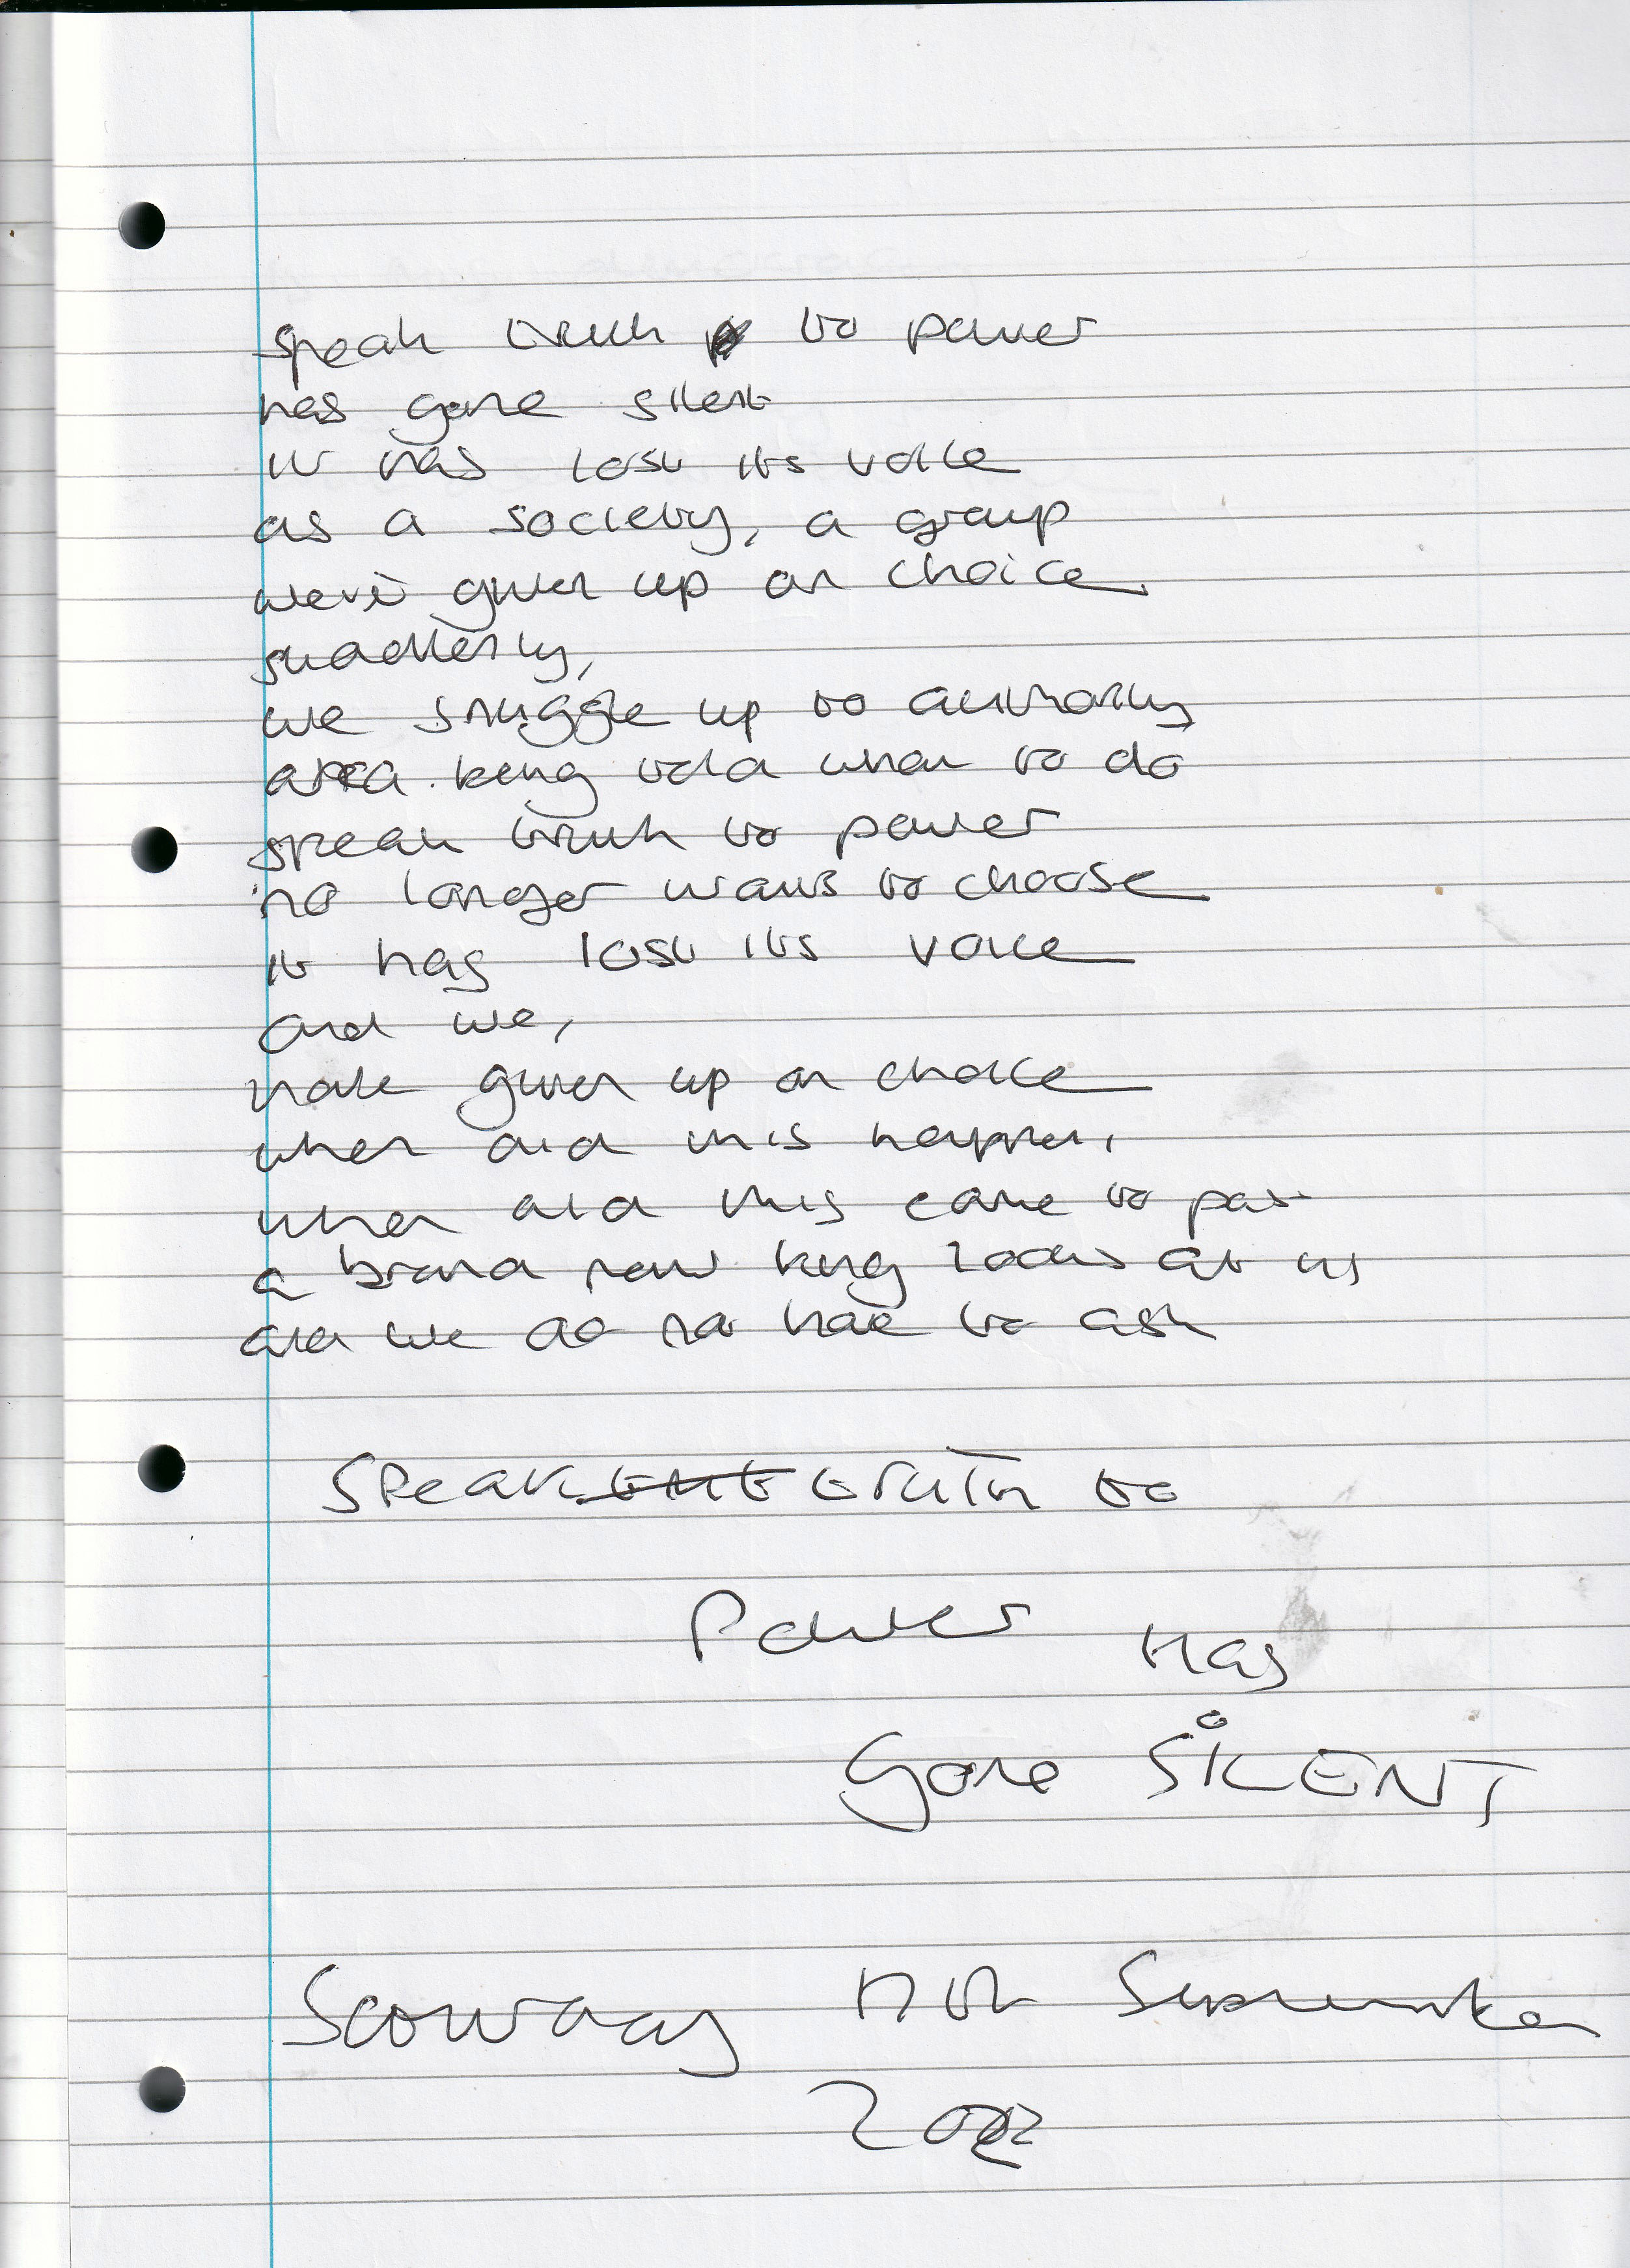 speak truth to power
has gone silent
it has lost its voice
as a society, a group
we've given up on choice.
suddenly,
we snuggle up to authority
and being told what to do
speak truth to power
no longer wants to choose
it has lost its voice
and we,
have given up on choice
when did this happen,
when did this come to pass
a brand new king looks at us
and we do not have to ask
SPEAK TRUTH to
Power Has
Gone SILENT
11th September
2022